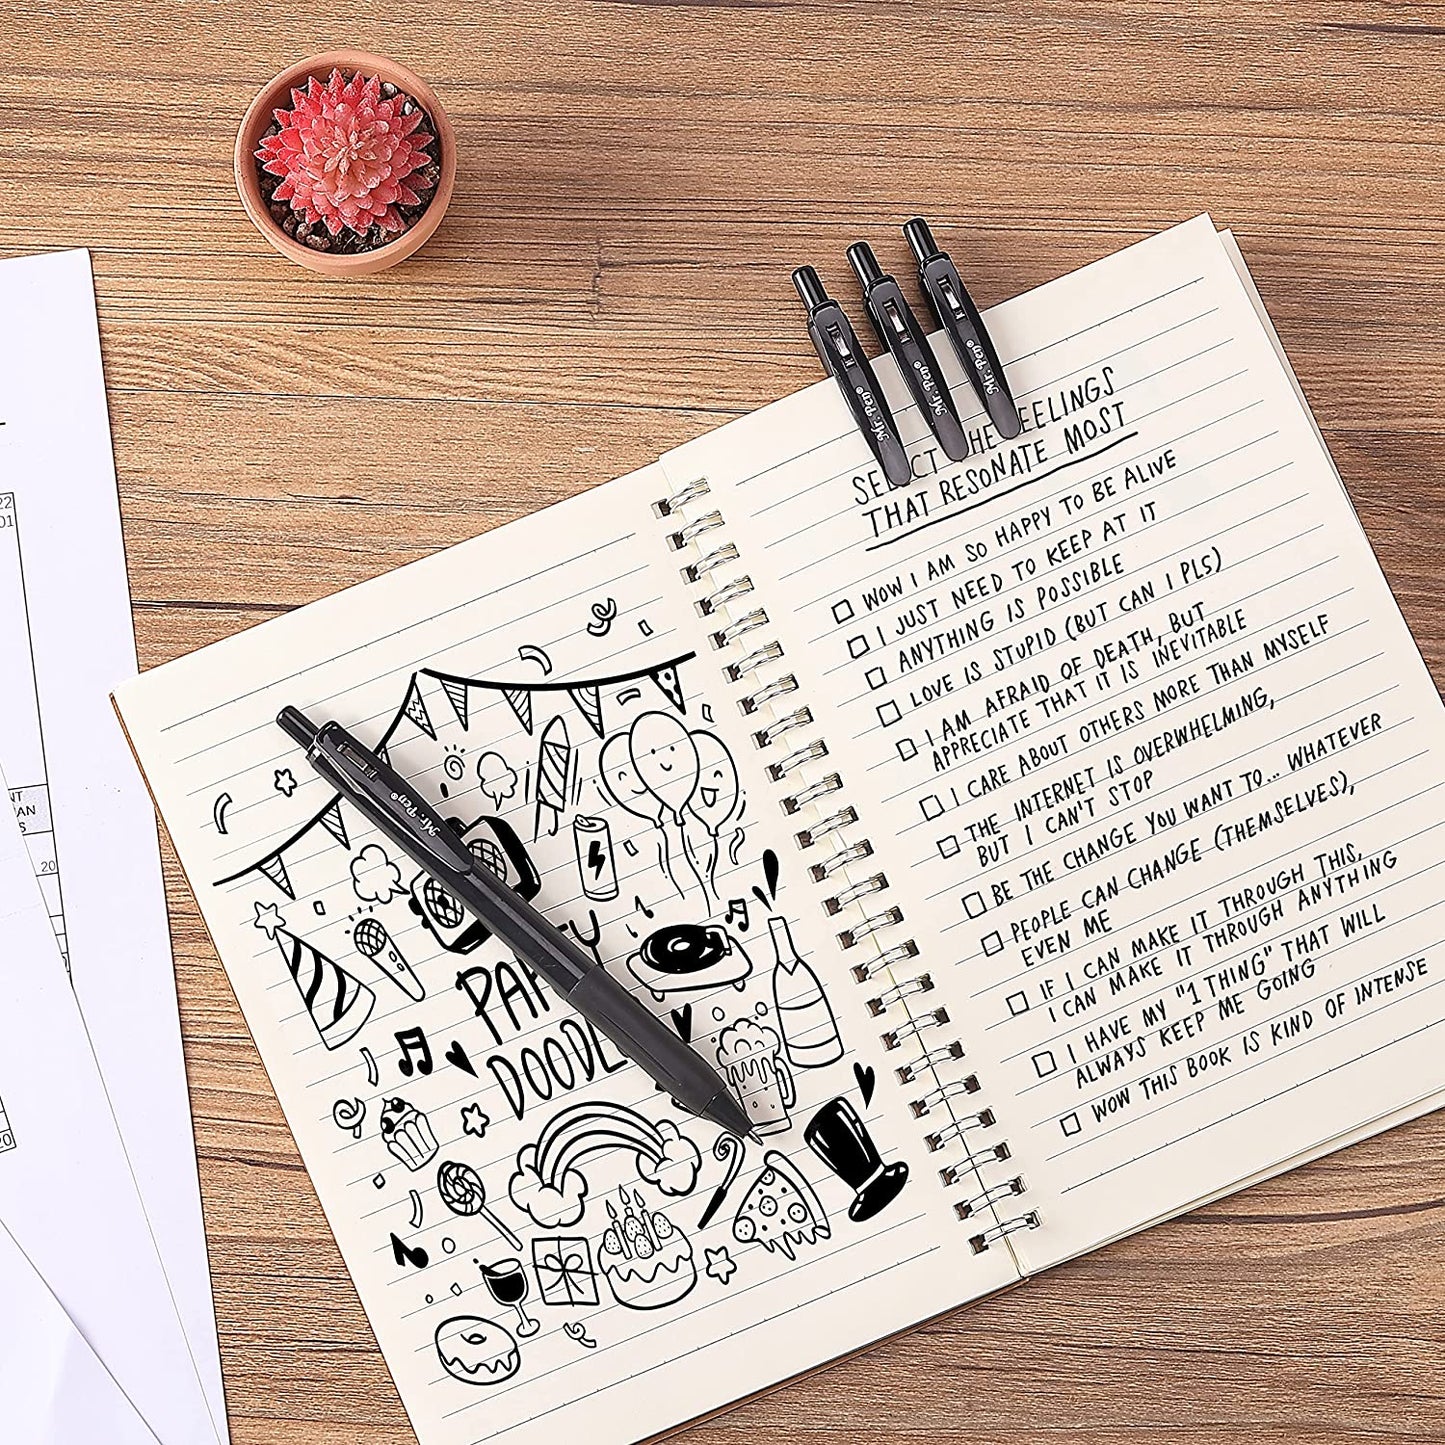 22
01
NT
AN
S
20
20
Mr. Pen®
Mr. Pen®
Mr. Pen®
Mr. Pen®
PARTY
DOODLE
SELECT THE FEELINGS
THAT RESONATE MOST
WOW I AM SO HAPPY TO BE ALIVE
I JUST NEED TO KEEP AT IT
ANYTHING IS POSSIBLE
LOVE IS STUPID (BUT CAN I PLS)
I AM AFRAID OF DEATH, BUT
APPRECIATE THAT IT IS INEVITABLE
I CARE ABOUT OTHERS MORE THAN MYSELF
THE INTERNET IS OVERWHELMING,
BUT I CAN'T STOP
BE THE CHANGE YOU WANT TO... WHATEVER
PEOPLE CAN CHANGE (THEMSELVES),
EVEN ME
IF I CAN MAKE IT THROUGH THIS,
I CAN MAKE IT THROUGH ANYTHING
I HAVE MY "1 THING" THAT WILL
ALWAYS KEEP ME GOING
WOW THIS BOOK IS KIND OF INTENSE